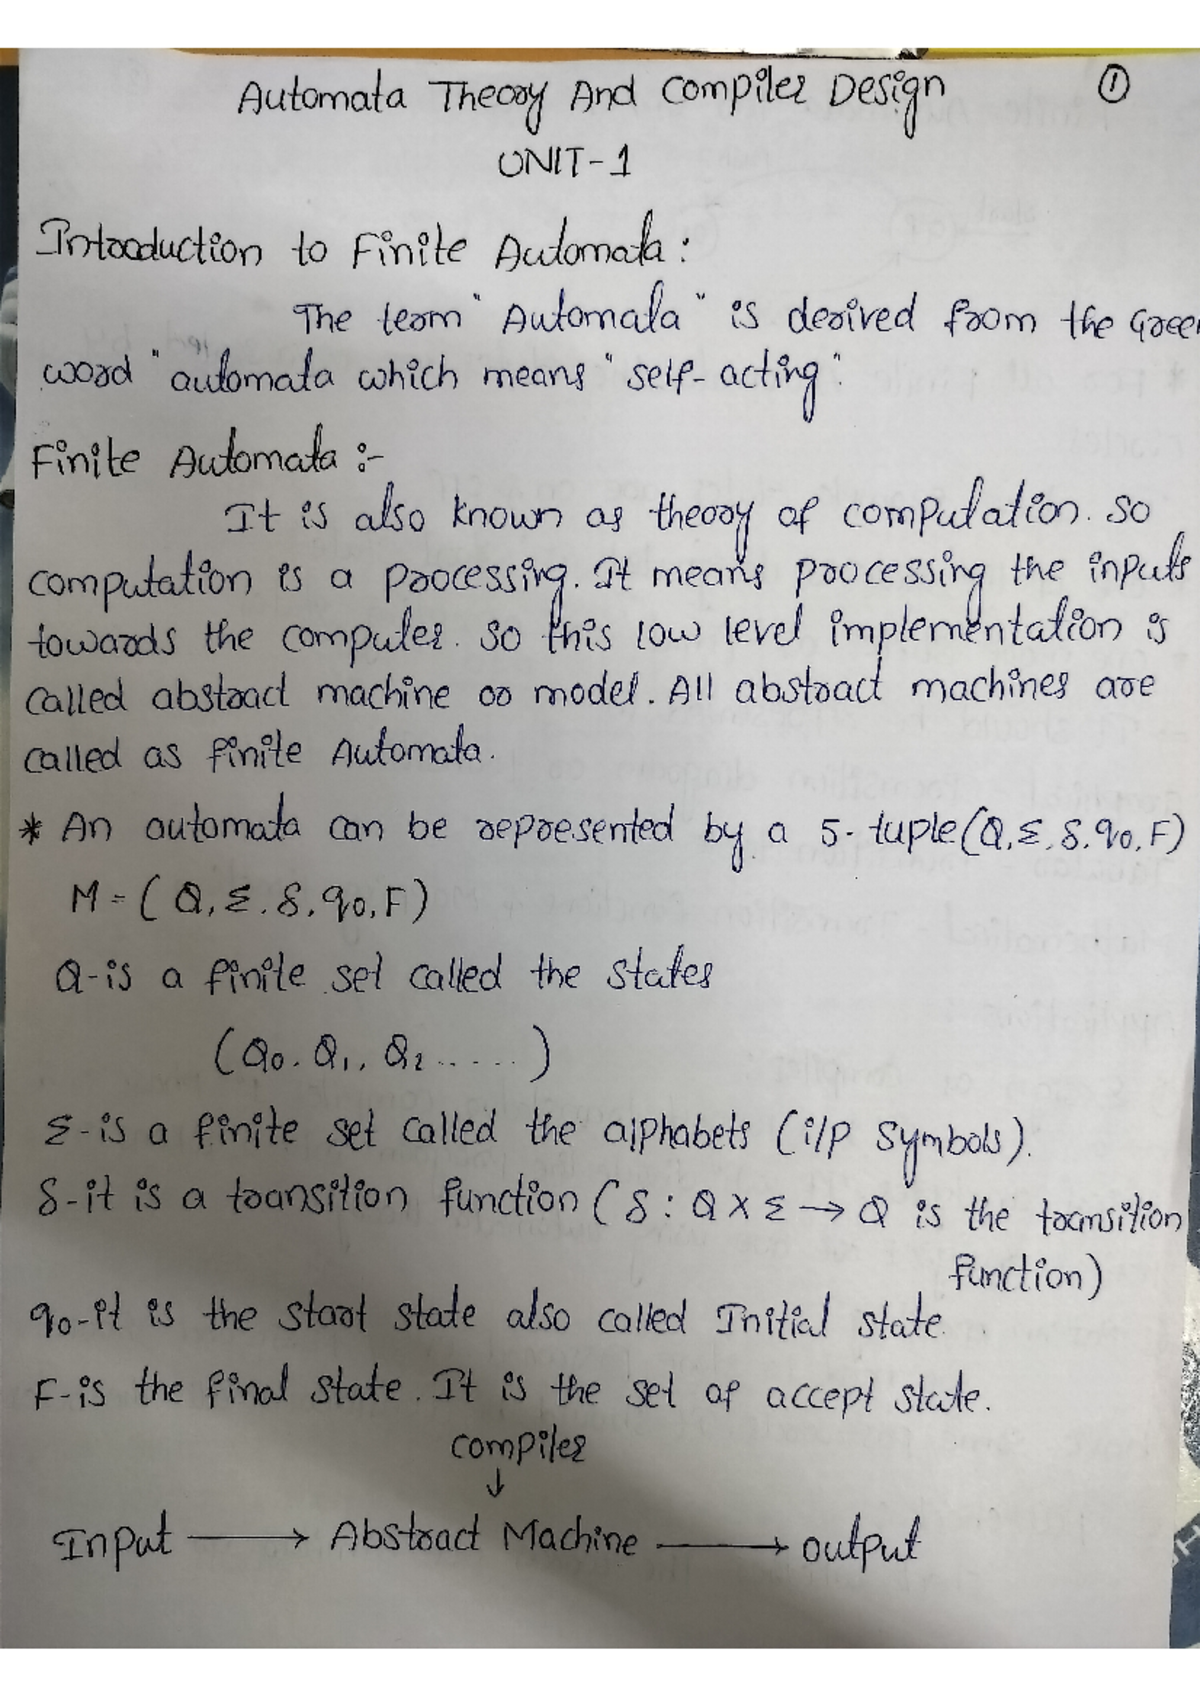 Automata Theory And Compiler Design ①
UNIT-1
Introduction to Finite Automata:
The term "Automata" is derived from the Greek
word "automata which means "self-acting".
Finite Automata :-
It is also known as theory of computation. So
computation is a processing. It means processing the inputs
towards the computer. So this low level implementation is
called abstract machine or model. All abstract machines are
called as finite Automata.
* An automata can be represented by a 5-tuple(Q,Σ,δ,q0,F)
M=(Q,Σ,δ,q0,F)
Q-is a finite set called the states
(Q0,Q1,Q2.....)
Σ-is a finite set called the alphabets (i/p symbols).
δ-it is a transition function (δ:QXΣ→Q is the transition
function)
q0-it is the start state also called Initial state.
F-is the final state. It is the set of accept state.
compiler
↓
Input → Abstract Machine → output